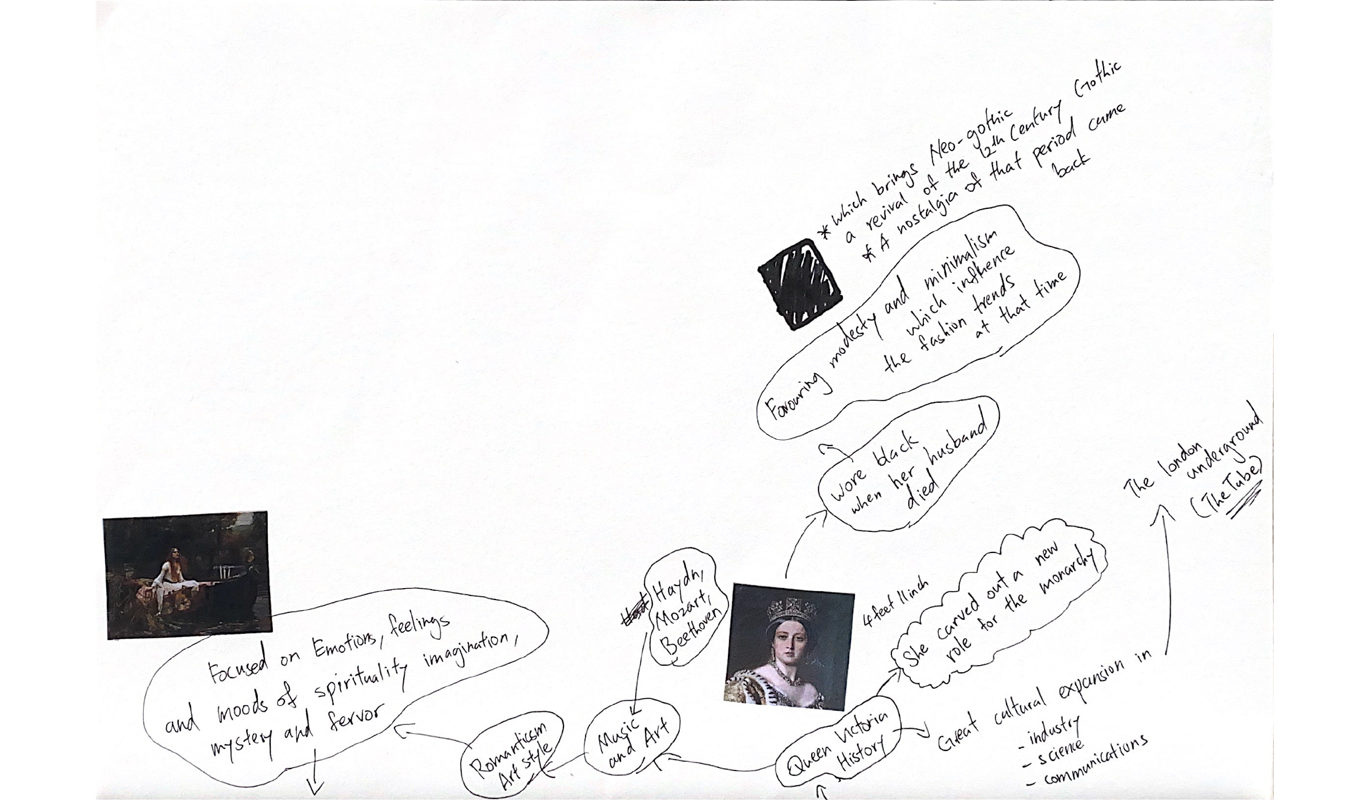 * which brings Neo-gothic
a revival of the 12th Century Gothic
* A nostalgia of that period came
back
Favouring modesty and minimalism
which influence
the fashion trends
at that time
wore black
when her husband
died
The london
underground
(The Tube)
4 feet 11 inch
She carved out a new
role for the monarchy
Haydn,
Mozart,
Beethoven
Focused on Emotions, feelings
and moods of spirituality imagination,
mystery and fervor
Music
and Art
Romanticism
Art style
Queen Victoria
History
Great cultural expansion in
- industry
- science
- communications